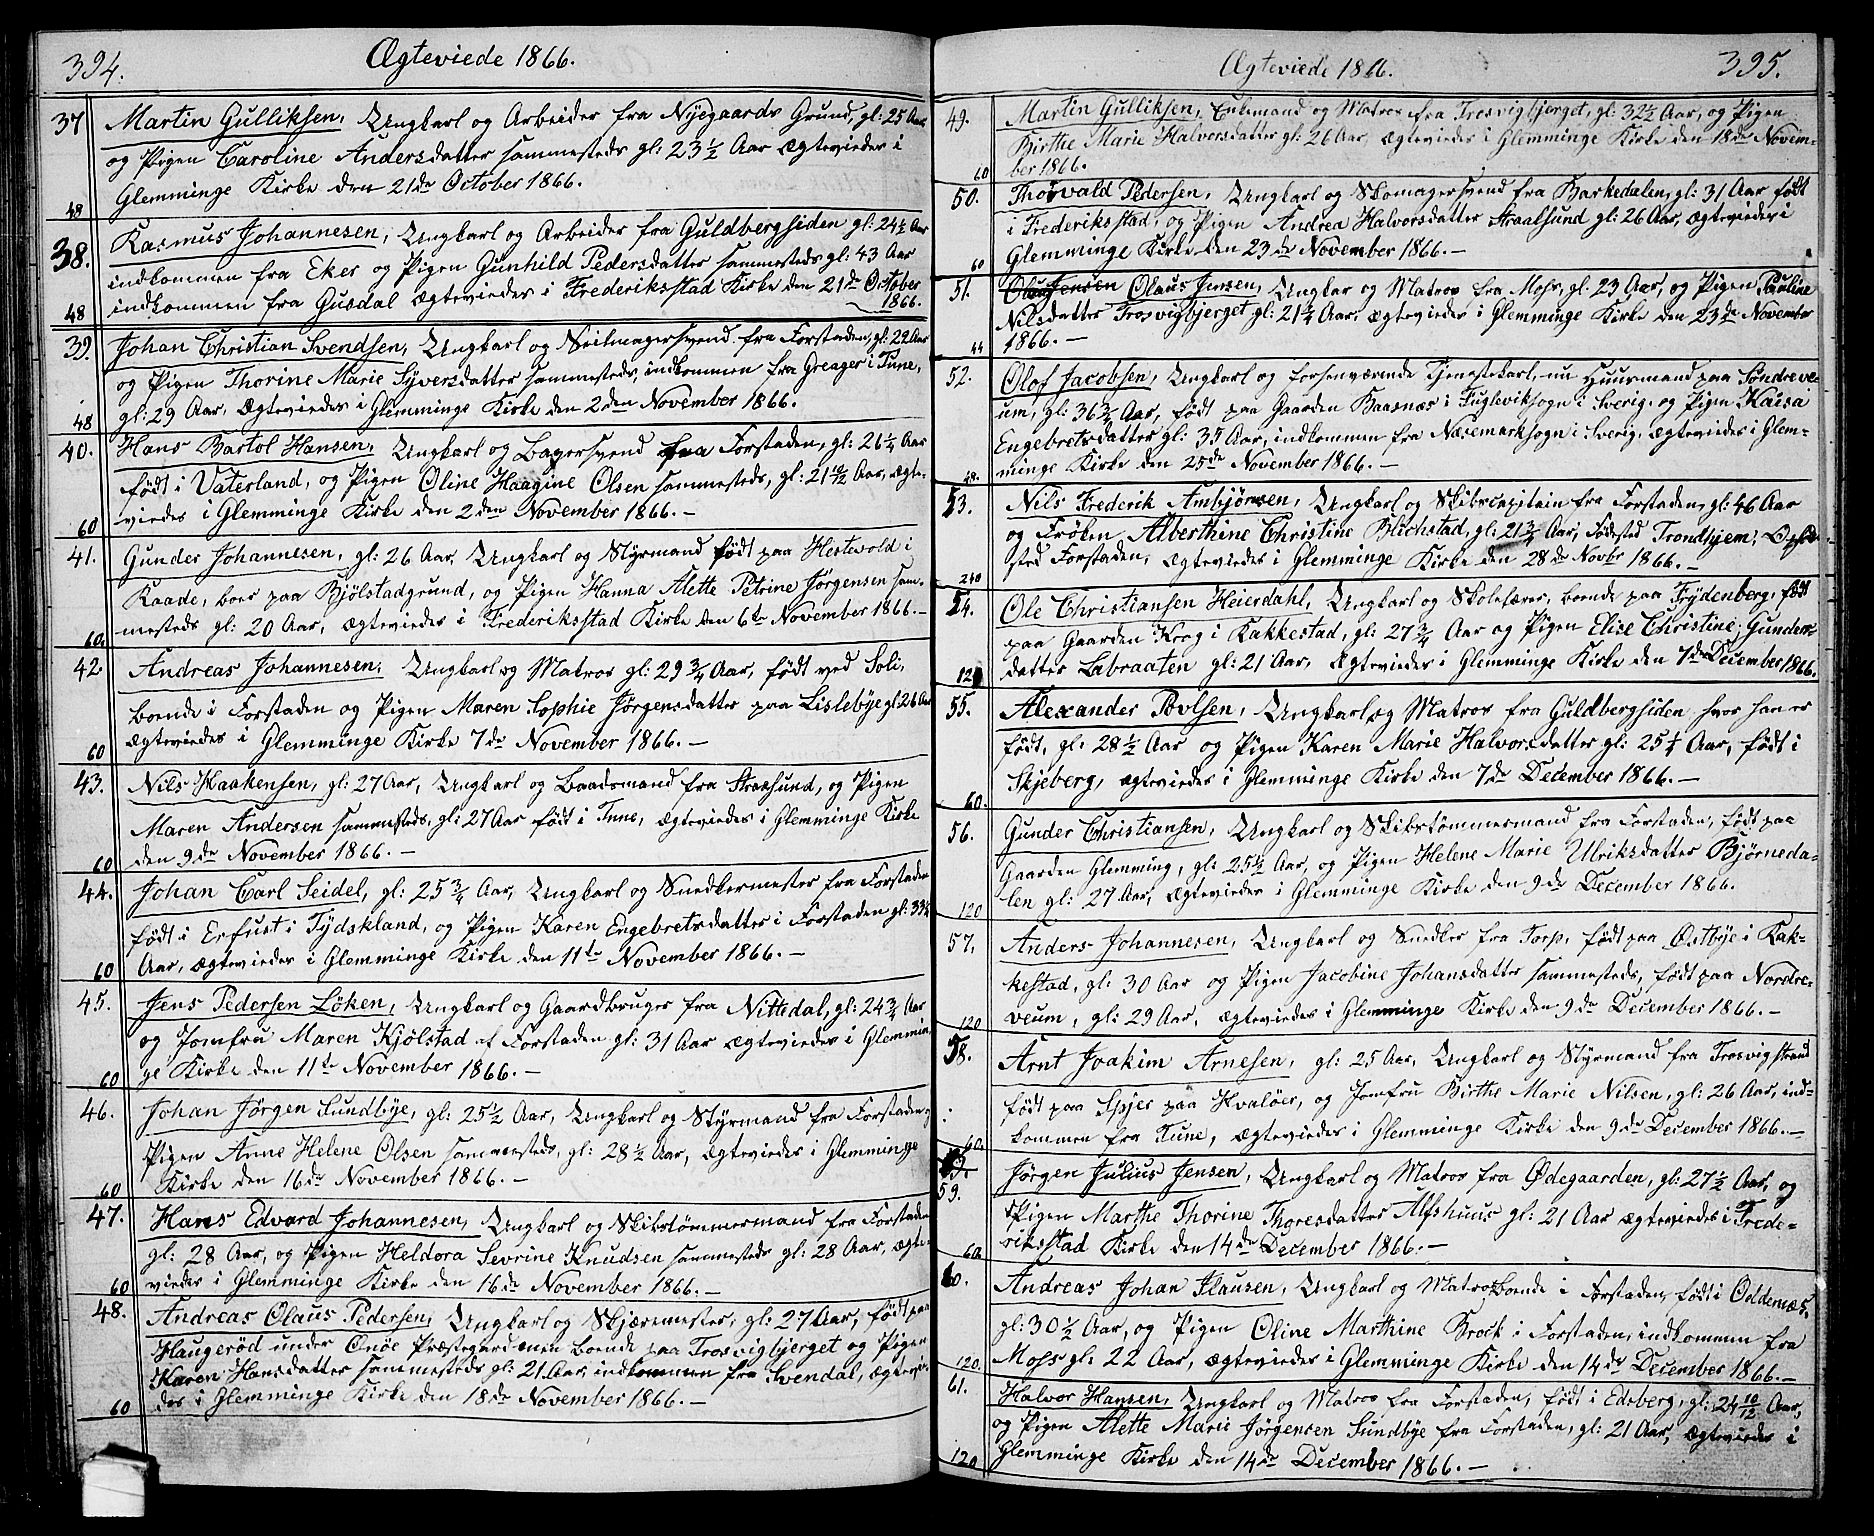 394.
Ægteviede 1866.
37 Martin Gulliksen, Ungkarl og Arbeider fra Nyegaards Grund, gl: 25 Aar
og Pigen Caroline Andersdatter sammesteds gl: 23 1/2 Aar Ægtevieder i
48 Glemminge Kirke den 21de October 1866.
38. Rasmus Johannesen, Ungkarl og Arbeider fra Guldbergsiden gl: 24 1/2 Aar
indkommen fra Eker og Pigen Gunhild Pedersdatter sammesteds gl: 43 Aar
48 indkommen fra Gusdal Ægtevieder i Frederiksstad Kirke den 21de October
1866.
39. Johan Christian Svendsen, Ungkarl og Seilmagersvend fra Forstaden, gl: 29 Aar
og Pigen Thorine Marie Syversdatter sammesteds, indkommen fra Greager i Tune,
48 gl: 29 Aar, Ægtevieder i Glemminge Kirke den 2den November 1866.
40. Hans Bartol Hansen, Ungkarl og Bagersvend fra Forstaden, gl: 26 1/4 Aar
født i Vaterland, og Pigen Oline Haagine Olsen sammesteds, gl: 21 Aar, ægte-
60 vieder i Glemminge Kirke den 2den November 1866. -
41. Gunder Johannesen, gl: 26 Aar, Ungkarl og Styrmand født paa Hestevold i
Raade, boer paa Bjölstadgrund, og Pigen Hanna Alette Petrine Jørgensen sam-
60. mesteds gl: 20 Aar, ægtevieder i Frederiksstad Kirke den 6te November 1866. -
42 Andreas Johannesen, Ungkarl og Matros gl: 29 3/4 Aar, født ved Soli,
boende i Forstaden og Pigen Maren Sophie Jørgensdatter paa Lislebye gl: 26 Aar
60 Ægtevieder i Glemminge Kirke 7de November 1866. -
43. Nils Haakensen, gl: 27 Aar, Ungkarl og Baadsmand fra Straalsund, og Pigen
Maren Andersen sammesteds, gl: 27 Aar født i Tune, Ægtevieder i Glemminge Kirke
60 den 9de November 1866. -
44. Johan Carl Seidel, gl: 25 3/4 Aar, Ungkarl og Snedkermester fra Forstaden
født i Erfust i Tydskland, og Pigen Karen Engebretsdatter i Forstaden gl: 33 1/4
60 Aar, Ægtevieder i Glemminge Kirke den 11te November 1866. -
45. Jens Pedersen Løken, Ungkarl og Gaardbruger fra Nittedal, gl: 24 3/4 Aar
og Jomfru Maren Kjølstad af Forstaden gl: 31 Aar Ægtevieder i Glemmin-
60 ge Kirke den 11te November 1866. -
46. Johan Jørgen Sundbye, gl: 25 1/2 Aar, Ungkarl og Styrmand fra Forstaden og
Pigen Anne Helene Olsen sammesteds, gl: 28 1/2 Aar, Ægtevieder i Glemminge
60 Kirke den 16de November 1866. -
47. Hans Edvard Johannesen, Ungkarl og Skibstømmermand fra Forstaden
gl: 28 Aar, og Pigen Heldora Sevrine Knudsen sammesteds gl: 28 Aar, ægte-
60 vieder i Glemminge Kirke den 16de November 1866. -
48. Andreas Olaus Pedersen, Ungkarl og Skjæremester, gl: 27 Aar, født paa
Haugerød under Onsöe Præstegard men boende paa Trosvigbjerget og Pigen
Karen Hansdatter sammesteds gl: 21 Aar, indkommen fra Svendal, Ægtevie-
60 des i Glemminge Kirke den 18de November 1866. -
Ægteviede 1866.
395.
49. Martin Gulliksen, Enkemand og Matros fra Trosvigbjerget, gl: 32 1/2 Aar, og Pigen
Birthe Marie Halvorsdatter gl: 26 Aar, Ægtevieder i Glemminge Kirke den 18de Novem-
60 ber 1866.
50. Thorvald Pedersen, Ungkarl og Skomagersvend fra Barkedalen, gl: 31 Aar født
i Frederiksstad, og Pigen Andrea Halvorsdatter Straalsund gl: 26 Aar, Ægtevieder i
60 Glemminge Kirke den 23de November 1866. -
51. Olaus Jensen, Ungkar og Matros fra Moss, gl: 23 Aar, og Pigen Pauline
Nilsdatter Trosvigbjerget gl: 21 1/4 Aar, Ægtevieder i Glemminge Kirke den 23de November
44 1866. -
52. Olof Jacobsen, Ungkarl og forhenværende Tjenestekarl, nu Huusmand paa Søndreve-
um, gl: 36 3/4 Aar, født paa Gaarden Baasnæs i Fuglevigsogn i Sverig, og Pigen Kaisa
Engebretsdatter gl: 35 Aar, indkommen fra Næsemarksogn i Sverig, Ægtevieder i Glem-
48. minge Kirke den 25de November 1866. -
53. Nils Frederik Ambjørnsen, Ungkarl og Skibscapitain fra Forstaden, gl: 46 Aar
og Frøken Alberthine Christine Blichstad, gl: 21 3/4 Aar, Fødested Trondhjem, Ophold-
240 sted Forstaden, Ægtevieder i Glemminge Kirke den 28de Novbr 1866. -
54. Ole Christiansen Heierdahl, Ungkarl og Skolelærer, boende paa Frydenberg, født
paa Gaarden Krog i Rakkestad, gl: 27 3/4 Aar og Pigen Elise Christine Gunders-
120 datter Labraaten gl: 21 Aar, Ægtevieder i Glemminge Kirke den 7de December 1866.
55. Alexander Povlsen, Ungkarl og Matros fra Guldbergsiden hvor han er
født, gl: 28 1/2 Aar og Pigen Karen Marie Halvorsdatter gl: 25 1/4 Aar, født i
60. Skjeberg, Ægtevieder i Glemminge Kirke den 7de December 1866. -
56. Gunder Christiansen, Ungkarl og Skibstømmermand fra Forstaden, født paa
Gaarden Glemming, gl: 25 1/2 Aar, og Pigen Helene Marie Ulriksdatter Bjørneda-
120 len gl: 27 Aar, Ægtevieder i Glemminge Kirke den 9de December 1866.
57. Anders Johannesen, Ungkarl og Snedker fra Torp, født paa Østbye i Rak-
kestad, gl: 30 Aar og Pigen Jacobine Johansdatter sammesteds, født paa Nordre-
120 veum, gl: 29 Aar, Ægtevieder i Glemminge Kirke den 9de December 1866. -
58. Arnt Joakim Arnesen, gl: 25 Aar, Ungkarl og Styrmand fra Trosvigstrand
født paa Spjer paa Hvaløer, og Jomfru Birthe Marie Nilsen, gl: 26 Aar, ind-
60. kommen fra Tune, Ægtevieder i Glemminge Kirke den 9de December 1866. -
59. Jørgen Julius Jensen, Ungkarl og Matros fra Ødegaarden, gl: 27 1/2 Aar, og
Pigen Marthe Thorine Thoresdatter Alfshuus gl: 21 Aar Ægtevieder i Frede-
60. riksstad Kirke den 14de December 1866. -
60. Andreas Johan Klausen, Ungkarl og Matros boende i Forstaden, født i Oddenæs,
gl: 30 1/2 Aar, og Pigen Oline Marthine Brock i Forstaden, indkommen fra
120. Moss gl: 22 Aar, Ægtevieder i Glemminge Kirke den 14de December 1866. -
61. Halvor Hansen, Ungkarl og Matros fra Forstaden, født i Edsberg, gl: 24 10/12 Aar,
og Pigen Alette Marie Jørgensen Sundbye fra Forstaden, gl: 21 Aar, Ægtevieder i
120 Glemminge Kirke den 14de December 1866. -